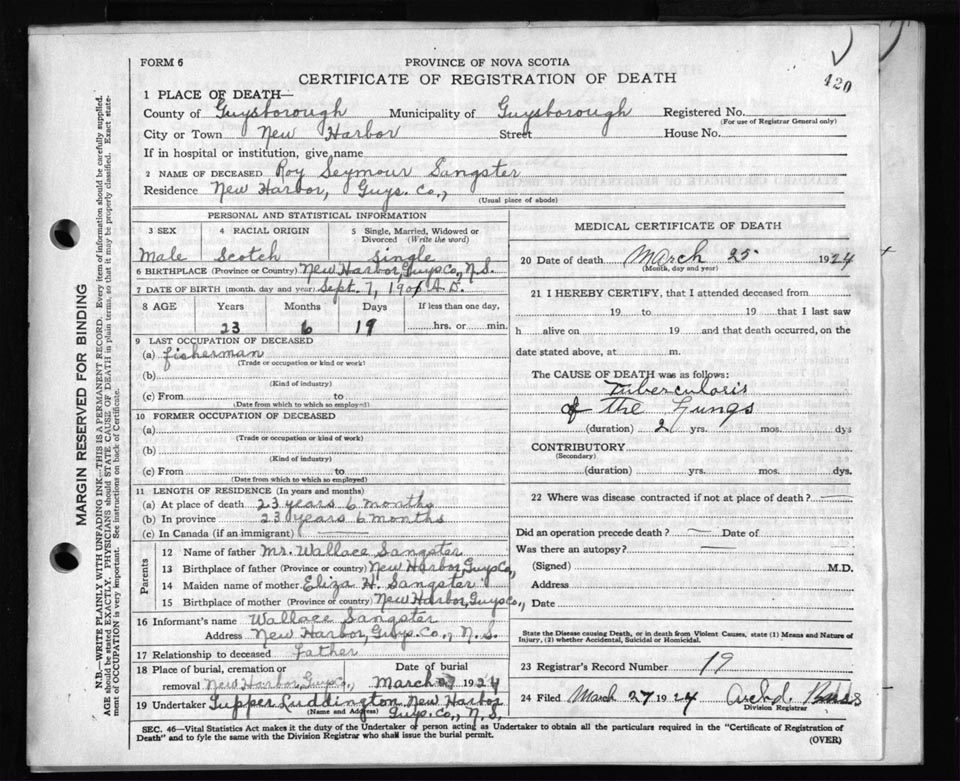 420
FORM 6
PROVINCE OF NOVA SCOTIA
CERTIFICATE OF REGISTRATION OF DEATH
1 PLACE OF DEATH—
County of Guysborough Municipality of Guysborough Registered No.
(For use of Registrar General only)
City or Town New Harbor Street House No.
If in hospital or institution, give name
2 NAME OF DECEASED Roy Seymour Sangster
Residence New Harbor, Guys. Co.,
(Usual place of abode)
PERSONAL AND STATISTICAL INFORMATION
3 SEX 4 RACIAL ORIGIN 5 Single, Married, Widowed or Divorced (Write the word)
Male Scotch Single
6 BIRTHPLACE (Province or Country) New Harbor, Guys Co., N.S.
7 DATE OF BIRTH (month, day and year) Sept. 7, A.D.
8 AGE Years Months Days If less than one day,
23 6 19 hrs. or min.
9 LAST OCCUPATION OF DECEASED
(a) fisherman
(Trade or occupation or kind or work)
(b)
(Kind of industry)
(c) From to
(Date from which to which so employed)
10 FORMER OCCUPATION OF DECEASED
(a)
(Trade or occupation or kind of work)
(b)
(Kind of industry)
(c) From to
(Date from which to which so employed)
11 LENGTH OF RESIDENCE (In years and months)
(a) At place of death 23 years 6 months
(b) In province 23 years 6 months
(c) In Canada (if an immigrant)
Parents
12 Name of father Mr. Wallace Sangster
13 Birthplace of father (Province or country) New Harbor, Guys Co.,
14 Maiden name of mother Eliza H. Sangster
15 Birthplace of mother (Province or country) New Harbor, Guys Co.,
16 Informant's name Wallace Sangster
Address New Harbor, Guys. Co., N.S.
17 Relationship to deceased Father
18 Place of burial, cremation or removal Date of burial
New Harbor, Guys Co., March 1924
19 Undertaker Tupper Luddington New Harbor
(Name and Address) Guys. Co., N.S.
MEDICAL CERTIFICATE OF DEATH
20 Date of death March 25 1924
(Month, day and year)
21 I HEREBY CERTIFY, that I attended deceased from
19 to 19 that I last saw
h alive on 19 and that death occurred, on the
date stated above, at m.
The CAUSE OF DEATH was as follows:
Tuberculosis
of the Lungs
(duration) 2 yrs. mos. dys
CONTRIBUTORY
(Secondary)
(duration) yrs. mos. dys.
22 Where was disease contracted if not at place of death?
Did an operation precede death? Date of
Was there an autopsy?
(Signed) M.D.
Address
Date
State the Disease causing Death, or in death from Violent Causes, state (1) Means and Nature of
Injury, (2) whether Accidental, Suicidal or Homicidal.
23 Registrar's Record Number 19
24 Filed March 27 1924 Arch'd.
Division Registrar
SEC. 46—Vital Statistics Act makes it the duty of the Undertaker or person acting as Undertaker to obtain all the particulars required in the "Certificate of Registration of
Death" and to fyle the same with the Division Registrar who shall issue the burial permit.
(OVER)
MARGIN RESERVED FOR BINDING
N.B.—WRITE PLAINLY WITH UNFADING INK—THIS IS A PERMANENT RECORD. Every item of information should be carefully supplied.
AGE should be stated EXACTLY. PHYSICIANS should STATE CAUSE OF DEATH in plain terms, so that it may be properly classified. Exact state-
ment of OCCUPATION is very important. See instructions on back of Certificate.